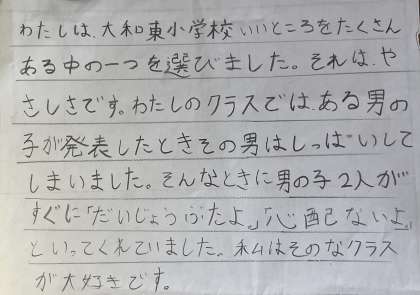 わたしは、大和東小学校いいところをたくさん
ある中の一つを選びました。それは、や
さしさです。わたしのクラスでは、ある男の
子が発表したときその男はしっぱいして
しまいました。そんなときに男の子2人が
すぐに「だいじょうぶたよ。」「心配ないよ」
といってくれていました。私はそのなクラス
が大好きです。